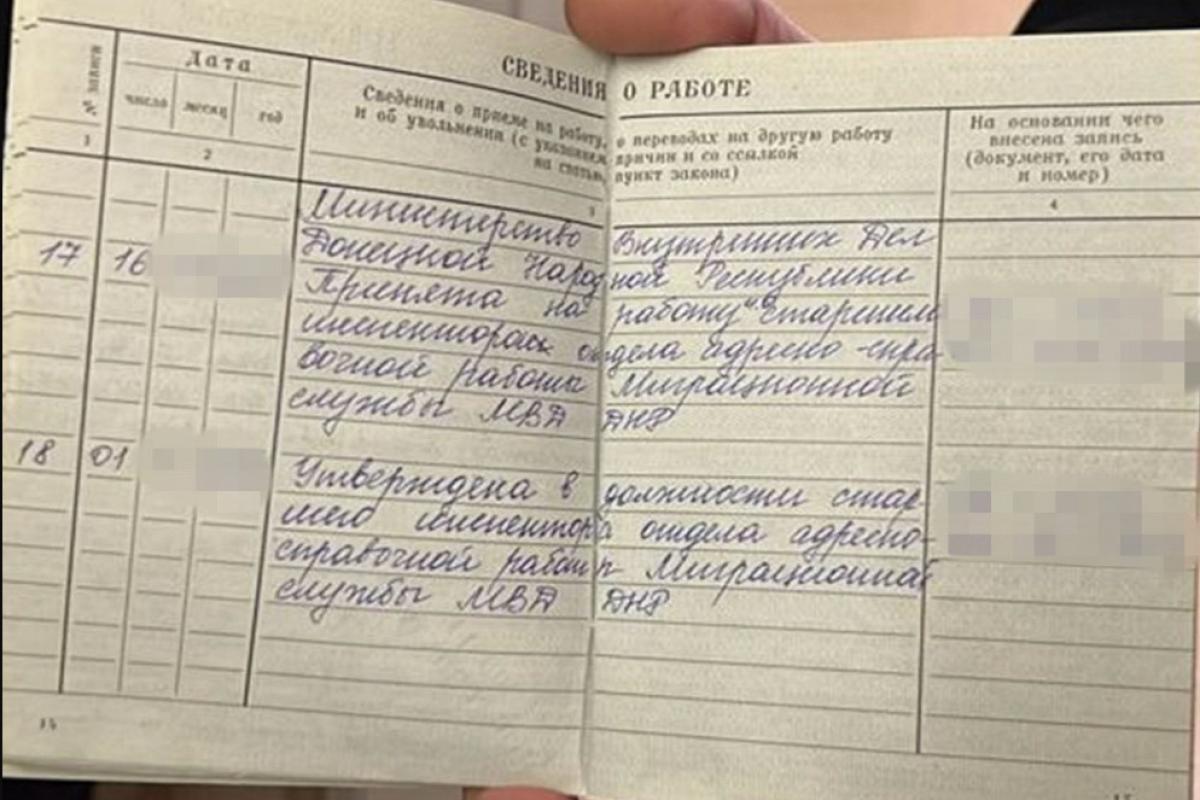 СВЕДЕНИЯ О РАБОТЕ
№ записи
Дата
число месяц год
Сведения о приеме на работу, о переводах на другую работу
и об увольнении (с указанием причин и со ссылкой
на статью, пункт закона)
На основании чего
внесена запись
(документ, его дата
и номер)
1 2 3 4
Министерство Внутренних Дел
17 16 Донецкой Народной Республики
Принята на работу старшим
инспектором отдела адресно-спра
вочной работы Миграционной
службы МВД ДНР
18 01
Утверждена в должности стар-
шего инспектора отдела адресно-
справочной работы Миграционной
службы МВД ДНР
14
15